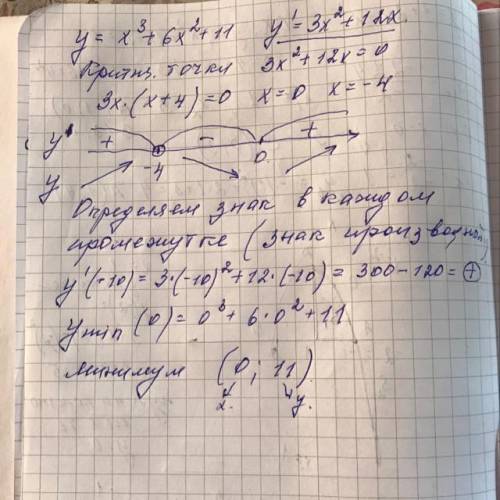 y = x³ + 6x² + 11   y' = 3x² + 12x.
Критич. точки   3x² + 12x = 0
3x·(x+4) = 0   x = 0   x = -4
y'   +   -   +
-4   0
y
Определяем знак в каждом
промежутке (знак производной)
y'(-10) = 3·(-10)² + 12·(-10) = 300 - 120 = +
y min (0) = 0³ + 6·0² + 11
минимум   (0; 11)
x.   y.